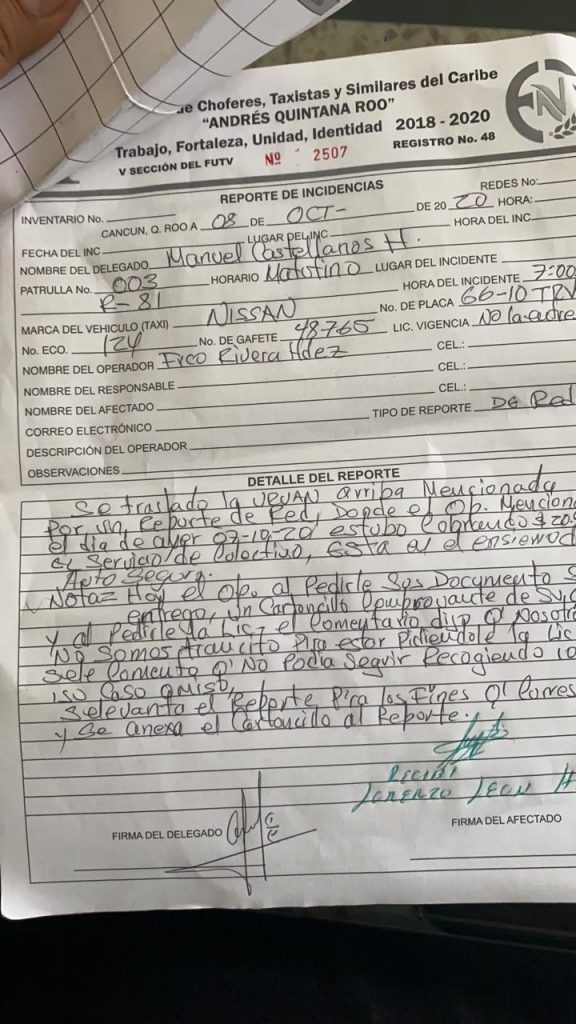 de Choferes, Taxistas y Similares del Caribe
"ANDRÉS QUINTANA ROO"
Trabajo, Fortaleza, Unidad, Identidad 2018 - 2020
V SECCIÓN DEL FUTV Nº 2507 REGISTRO No. 48
REPORTE DE INCIDENCIAS
INVENTARIO No. REDES No:
CANCUN, Q. ROO A 08 DE OCT- DE 2020 HORA:
FECHA DEL INC LUGAR DEL INC HORA DEL INC
NOMBRE DEL DELEGADO Manuel Castellanos H.
PATRULLA No. 003 HORARIO Matutino LUGAR DEL INCIDENTE
R-81 HORA DEL INCIDENTE 7:00
MARCA DEL VEHICULO (TAXI) NISSAN No. DE PLACA 66-10 TRV
No. ECO. 124 No. DE GAFETE 48765 LIC. VIGENCIA No la
NOMBRE DEL OPERADOR Frco Rivera Hdez CEL.:
NOMBRE DEL RESPONSABLE CEL.:
NOMBRE DEL AFECTADO CEL.:
CORREO ELECTRÓNICO TIPO DE REPORTE De Red
DESCRIPCIÓN DEL OPERADOR
OBSERVACIONES
DETALLE DEL REPORTE
Se traslado la URVAN arriba Mencionada
Por un Reporte de Red, Donde el Op. Mencion
el dia de ayer 07-10-20 estubo Cobrando $20.
el Servicio de Colectivo, Esta en el
Auto Seguro.
Nota: Hoy el Op. al Pedirle Sus Documento S
entrego, un Cartoncillo Comprovante de
y al Pedirle la Lic, el Comentario dijo Q' Nosotro
No Somos transito Pira estar Pidiendole la Lic
Sele Comento Q' No Podia Seguir Recogiendo
iso Caso omiso,
Selevanta el Reporte Pira los Fines Q' Corres
y Se anexa el Cartoncillo al Reporte.
Recibi
Lorenzo Lean H
FIRMA DEL DELEGADO FIRMA DEL AFECTADO